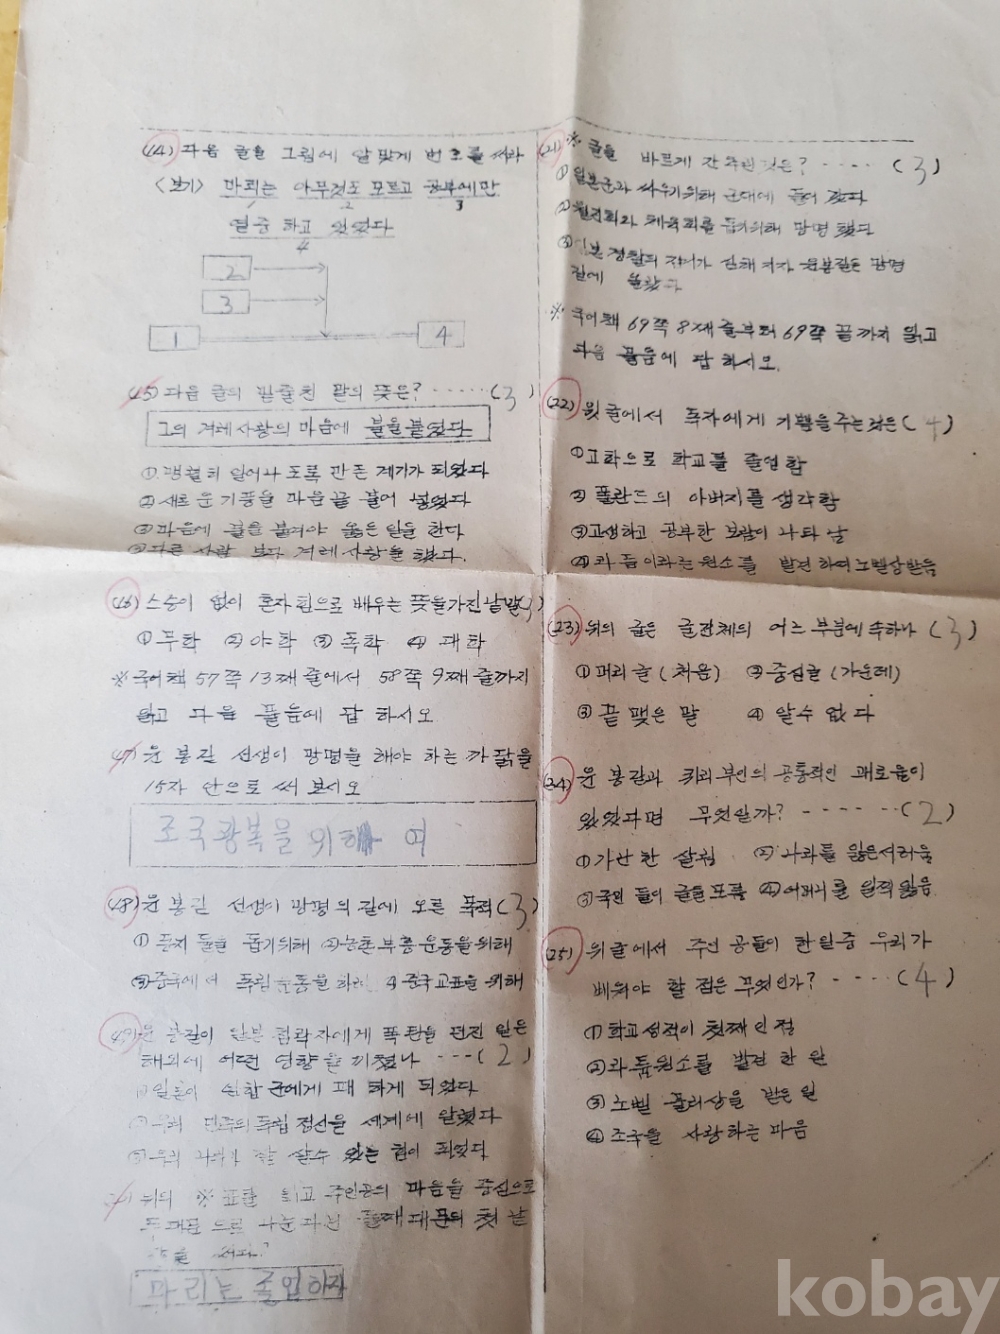 (14) 다음 글을 그림에 알맞게 번호를 써라
<보기> 마리는 아무것도 모르고 공부에만
1 2 3
열중 하고 있었다
4
2
3
1 4
(15) 다음 글의 밑줄 친 말의 뜻은? ····· (3)
그의 겨레 사랑의 마음에 불을 붙였다
① 맹렬히 일어나 도록 만든 계기가 되었다
② 새로운 기풍을 마음껏 불어 넣었다
③ 마음에 불을 붙여야 옳은 일을 한다
④ 다른 사람 보다 겨레 사랑을 했다.
(16) 스승이 없이 혼자 힘으로 배우는 뜻을가진 낱말(3)
① 무학 ② 야학 ③ 독학 ④ 괘학
※ 국어책 57쪽 13째 줄에서 58쪽 9째 줄까지
읽고 다음 물음에 답 하시오
(17) 윤 봉길 선생이 망명을 해야 하는 까닭을
15자 안으로 써 보시오
조국광복을 위해 여
(18) 윤 봉길 선생이 망명의 길에 오른 목적(3)
① 동지 들을 돕기위해 ② 농촌 부흥 운동을 위해
③ 중국에서 독립 운동을 하려 4 중국 교포를 위해
(19) 윤 봉길이 일본 침략자에게 폭탄을 던진 일은
해외에 어떤 영향을 끼쳤나 ···(2)
① 일본이 연합 군에게 패 하게 되었다
② 우리 민족의 독립 정신을 세계에 알렸다
③ 우리 나라가 잘 살수 있는 힘이 되었다
위의 ※ 표를 읽고 주인공의 마음을 중심으로
두 대문 으로 나눈다면 둘째 대문의 첫 낱
말을 써라?
마리는 졸업하자
(21) ※ 글을 바르게 간추린 것은? ···· (3)
① 일본군과 싸우기위해 군대에 들어 갔다
② 월진회와 체육회를 돕기위해 망명 했다
③ 일본 경찰의 감시가 심해 지자 윤봉길은 망명
길에 올랐다
※ 국어책 69쪽 8째 줄부터 69쪽 끝까지 읽고
다음 물음에 답 하시오.
(22) 윗 글에서 독자에게 기쁨을 주는 것은(4)
① 고학으로 학교를 졸업함
② 폴란드의 아버지를 생각함
③ 고생하고 공부한 보람이 나타 남
④ 라듐이라는 원소를 발견 하여 노벨상받음
(23) 위의 글은 글전체의 어느 부분에 속하나 (3)
① 머리 글 (처음) ② 중심글 (가운데)
③ 끝 맺은 말 ④ 알수 없다
(24) 윤 봉길과 퀴리 부인의 공통적인 괴로움이
있었다면 무엇일까? ·····(2)
① 가난 한 살림 ② 나라를 잃은서러움
③ 국민 들이 글을 모름 ④ 어머니 를 일찍 잃음
(25) 위 글에서 주인 공들이 한일중 우리가
배워야 할 점은 무엇인가? ····(4)
① 학교성적이 첫째 인 점
② 라듐원소를 발견 한 일
③ 노벨 물리상을 받은 일
④ 조국을 사랑하는 마음
kobay